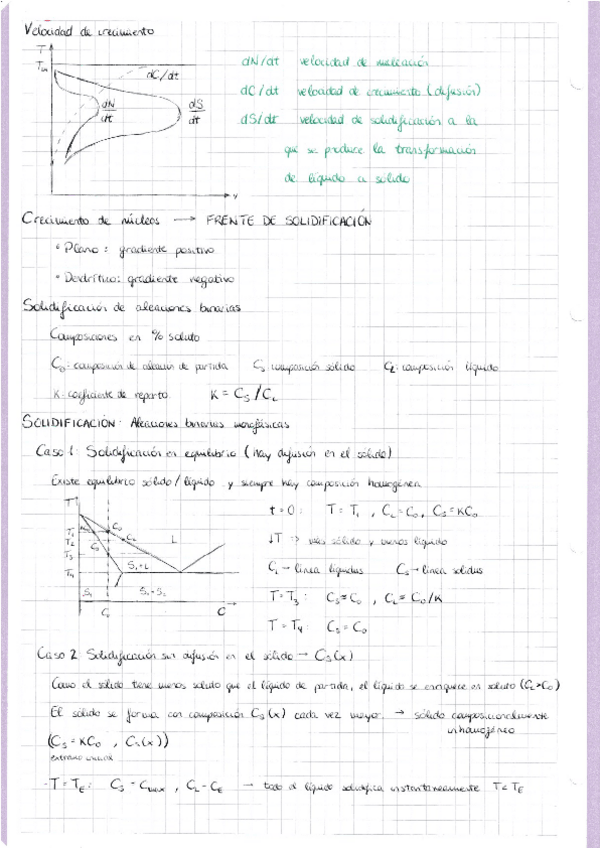 Velocidad de crecimiento
T
Tm
dC/dt
dN/dt
dS/dt
v
dN/dt velocidad de nucleación
dC/dt velocidad de crecimiento (difusión)
dS/dt velocidad de solidificación a la
que se produce la transformación
de líquido a sólido
Crecimiento de núcleos → FRENTE DE SOLIDIFICACIÓN
• Plano: gradiente positivo
• Dendrítico: gradiente negativo
Solidificación de aleaciones binarias
Composiciones en % soluto
C₀: composición de aleación de partida Cs composición sólido CL: composición líquido
K: coeficiente de reparto K = Cs/CL
SOLIDIFICACIÓN: Aleaciones binarias monofásicas
Caso 1: Solidificación en equilibrio (hay difusión en el sólido)
Existe equilibrio sólido/líquido y siempre hay composición homogénea
T
T₁
T₂
T₃
T₄
C₀
CL
Cs
L
S₁+L
S₁
S₁+S₂
C₀
C
t=0: T=T₁, CL=C₀, Cs=KC₀
↓T → más sólido y menos líquido
CL → línea liquidus Cs → línea solidus
T=T₃: Cs≈C₀, CL≈C₀/K
T=T₄: Cs=C₀
Caso 2 Solidificación sin difusión en el sólido → Cs(x)
Como el sólido tiene menos soluto que el líquido de partida, el líquido se enriquece en soluto (CL>C₀)
El sólido se forma con composición Cs(x) cada vez mayor. → sólido composicionalmente
inhomogéneo
(Cs=KC₀, Cs(x))
extremo inicial
- T=TE: Cs=Cmax, CL=CE → todo el líquido solidifica instantáneamente T<TE